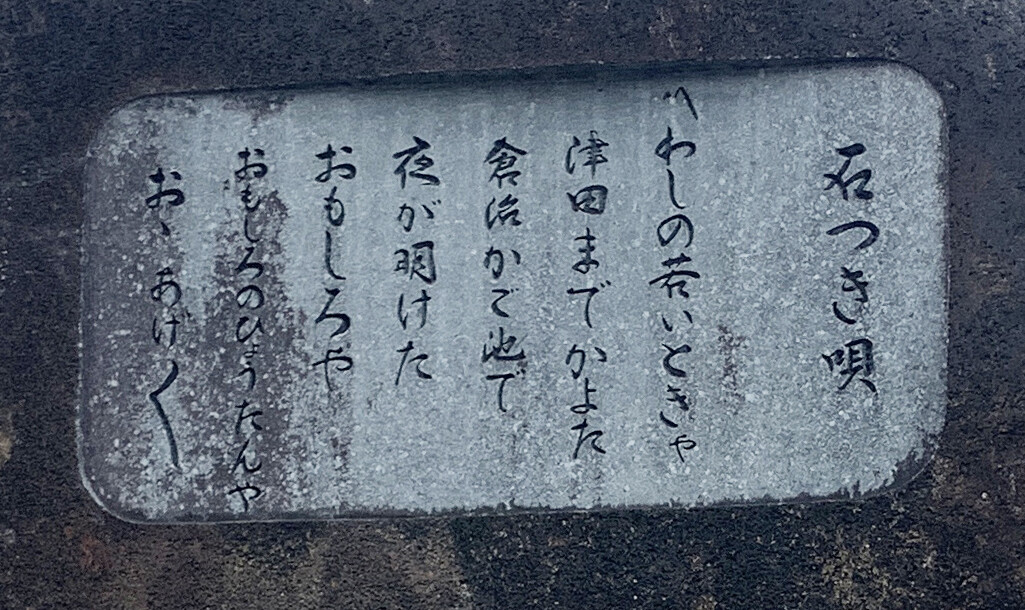 石つき唄
〽わしの若いときゃ
津田までかよた
倉治かご池で
夜が明けた
おもしろや
おもしろのひょうたんや
おゝあげ〱